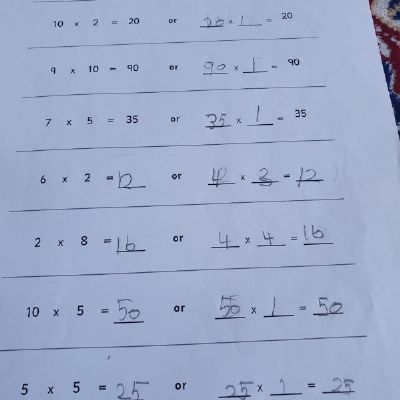 10 x 2 = 20 or 20 x 1 = 20
9 x 10 = 90 or 90 x 1 = 90
7 x 5 = 35 or 35 x 1 = 35
6 x 2 = 12 or 4 x 3 = 12
2 x 8 = 16 or 4 x 4 = 16
10 x 5 = 50 or 50 x 1 = 50
5 x 5 = 25 or 25 x 1 = 25